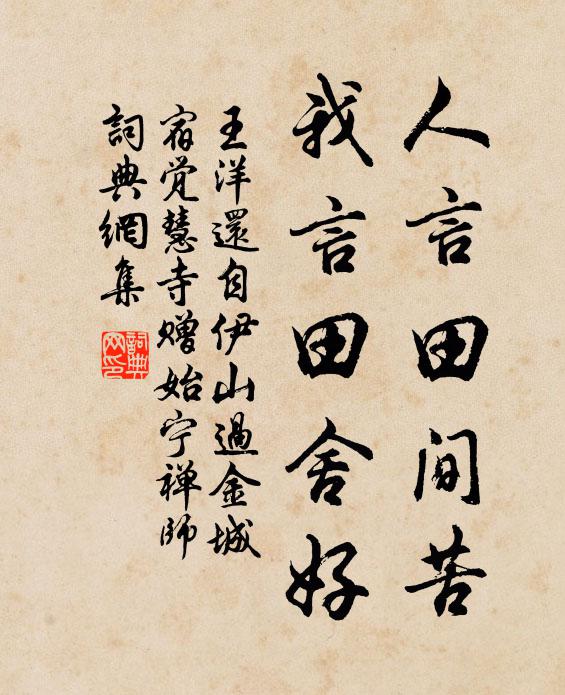 人言田间苦
我言田舍好
王洋還自伊山過金城
宿觉慧寺赠始宁禅师
詞典網集
詞典
网印